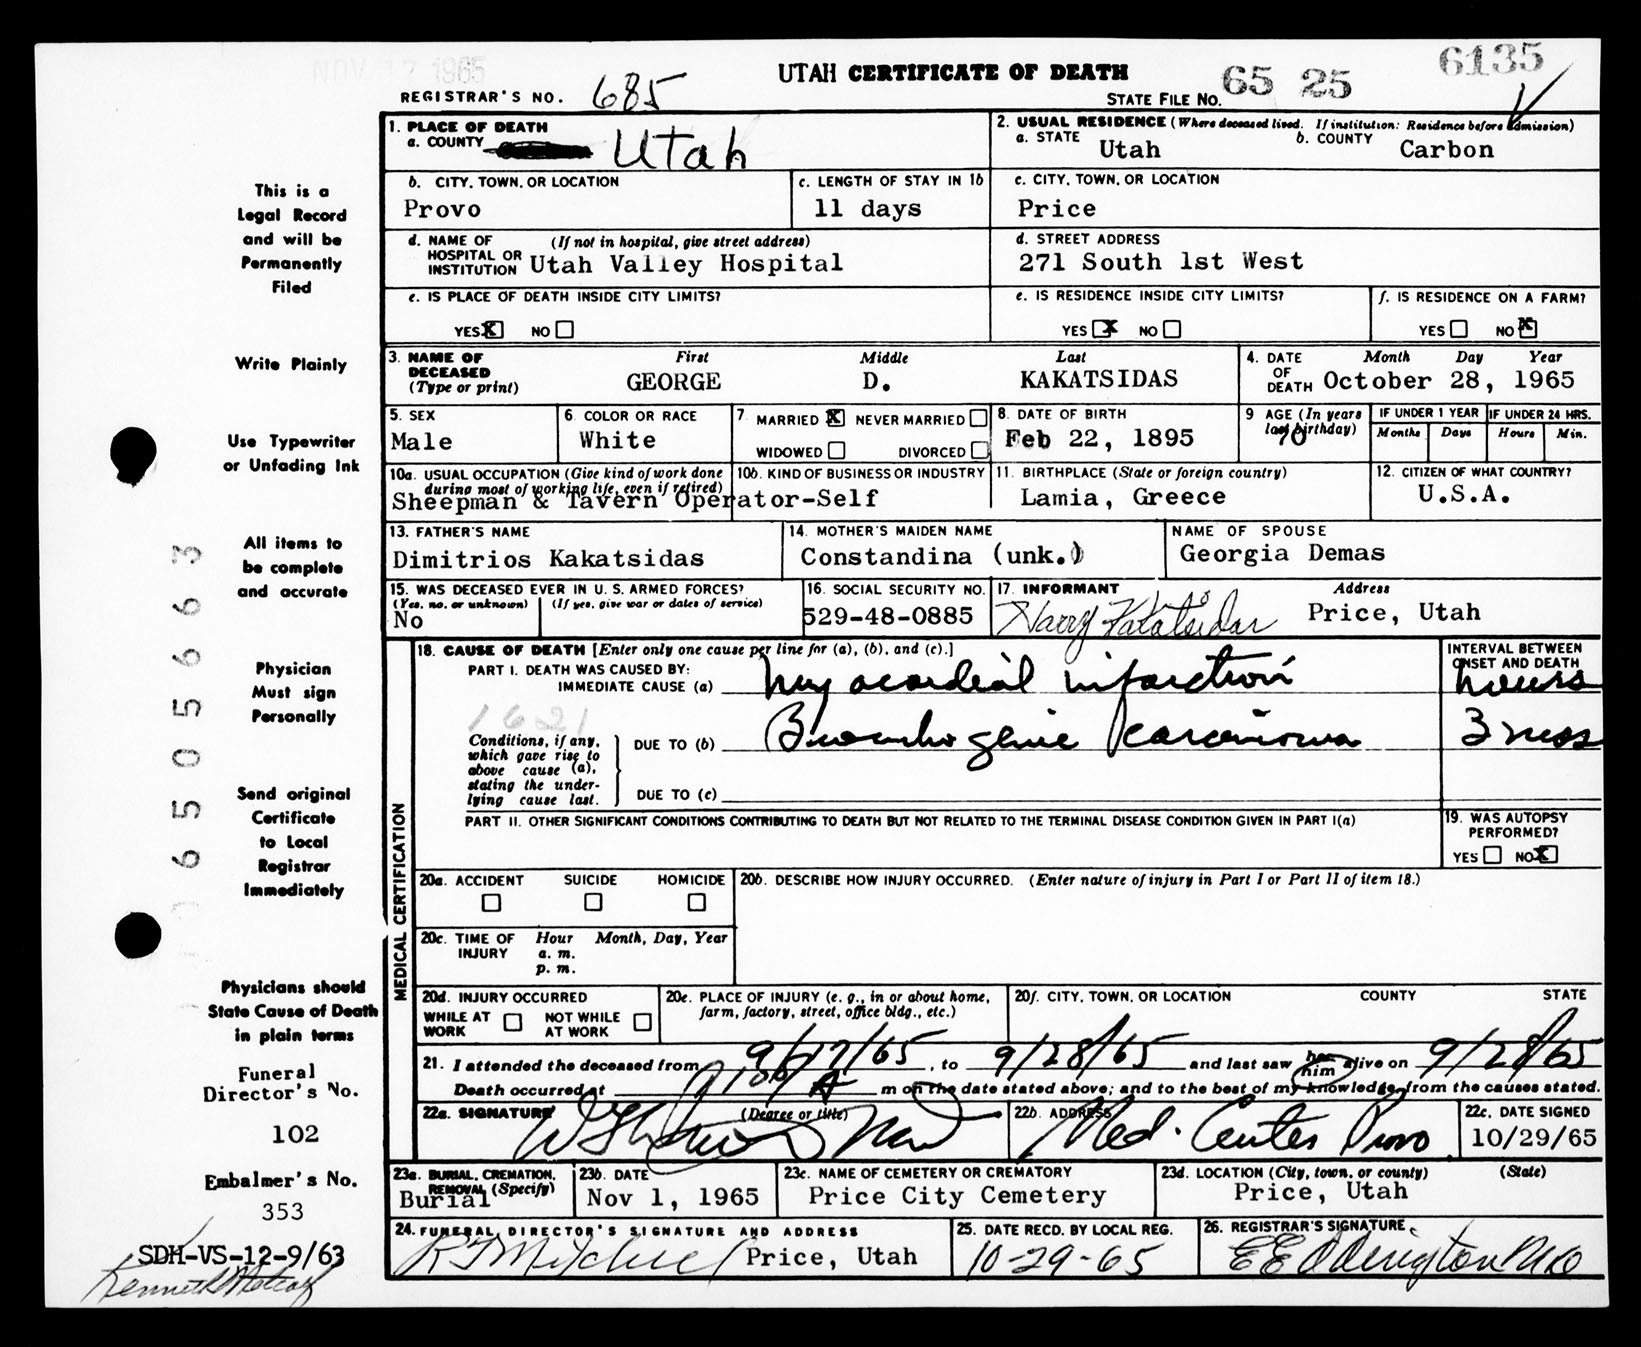 NOV 17 1965
UTAH CERTIFICATE OF DEATH
REGISTRAR'S NO. 685
STATE FILE NO. 65 25 6135
This is a
Legal Record
and will be
Permanently
Filed
Write Plainly
Use Typewriter
or Unfading Ink
All items to
be complete
and accurate
Physician
Must sign
Personally
Send original
Certificate
to Local
Registrar
Immediately
Physicians should
State Cause of Death
in plain terms
Funeral
Director's No.
102
Embalmer's No.
353
SDH-VS-12-9/63
Kenneth Metcalf
650566 3
1. PLACE OF DEATH
a. COUNTY Utah
2. USUAL RESIDENCE (Where deceased lived. If institution: Residence before admission)
a. STATE Utah b. COUNTY Carbon
b. CITY, TOWN, OR LOCATION Provo
c. LENGTH OF STAY IN 1b 11 days
c. CITY, TOWN, OR LOCATION Price
d. NAME OF HOSPITAL OR INSTITUTION (If not in hospital, give street address) Utah Valley Hospital
d. STREET ADDRESS 271 South 1st West
e. IS PLACE OF DEATH INSIDE CITY LIMITS?
YES X NO
e. IS RESIDENCE INSIDE CITY LIMITS?
YES X NO
f. IS RESIDENCE ON A FARM?
YES NO X
3. NAME OF DECEASED (Type or print)
First Middle Last
GEORGE D. KAKATSIDAS
4. DATE OF DEATH Month Day Year
October 28, 1965
5. SEX Male
6. COLOR OR RACE White
7. MARRIED X NEVER MARRIED
WIDOWED DIVORCED
8. DATE OF BIRTH Feb 22, 1895
9 AGE (In years last birthday) 70
IF UNDER 1 YEAR Months Days
IF UNDER 24 HRS. Hours Min.
10a. USUAL OCCUPATION (Give kind of work done during most of working life, even if retired)
10b. KIND OF BUSINESS OR INDUSTRY
Sheepman & Tavern Operator-Self
11. BIRTHPLACE (State or foreign country) Lamia, Greece
12. CITIZEN OF WHAT COUNTRY? U.S.A.
13. FATHER'S NAME Dimitrios Kakatsidas
14. MOTHER'S MAIDEN NAME Constandina (unk.)
NAME OF SPOUSE Georgia Demas
15. WAS DECEASED EVER IN U.S. ARMED FORCES?
(Yes, no, or unknown) (If yes, give war or dates of service)
No
16. SOCIAL SECURITY NO. 529-48-0885
17. INFORMANT Address
Harry Kakatsidas Price, Utah
MEDICAL CERTIFICATION
18. CAUSE OF DEATH [Enter only one cause per line for (a), (b), and (c).]
INTERVAL BETWEEN ONSET AND DEATH
PART I. DEATH WAS CAUSED BY:
IMMEDIATE CAUSE (a) Myocardial infarction hours
1621
Conditions, if any, which gave rise to above cause (a), stating the underlying cause last.
DUE TO (b) Bronchogenic Karcinoma 3 mos
DUE TO (c)
PART II. OTHER SIGNIFICANT CONDITIONS CONTRIBUTING TO DEATH BUT NOT RELATED TO THE TERMINAL DISEASE CONDITION GIVEN IN PART I(a)
19. WAS AUTOPSY PERFORMED?
YES NO X
20a. ACCIDENT SUICIDE HOMICIDE
20b. DESCRIBE HOW INJURY OCCURRED. (Enter nature of injury in Part I or Part II of item 18.)
20c. TIME OF INJURY Hour Month, Day, Year
a. m.
p. m.
20d. INJURY OCCURRED
WHILE AT WORK NOT WHILE AT WORK
20e. PLACE OF INJURY (e. g., in or about home, farm, factory, street, office bldg., etc.)
20f. CITY, TOWN, OR LOCATION COUNTY STATE
21. I attended the deceased from 9/17/65, to 9/28/65 and last saw her him alive on 9/28/65
Death occurred at A m on the date stated above; and to the best of my knowledge, from the causes stated.
22a. SIGNATURE (Degree or title)
22b. ADDRESS Med. Center Provo
22c. DATE SIGNED 10/29/65
23a. BURIAL, CREMATION, REMOVAL (Specify) Burial
23b. DATE Nov 1, 1965
23c. NAME OF CEMETERY OR CREMATORY Price City Cemetery
23d. LOCATION (City, town, or county) (State)
Price, Utah
24. FUNERAL DIRECTOR'S SIGNATURE AND ADDRESS
Mitchell Price, Utah
25. DATE RECD. BY LOCAL REG. 10-29-65
26. REGISTRAR'S SIGNATURE